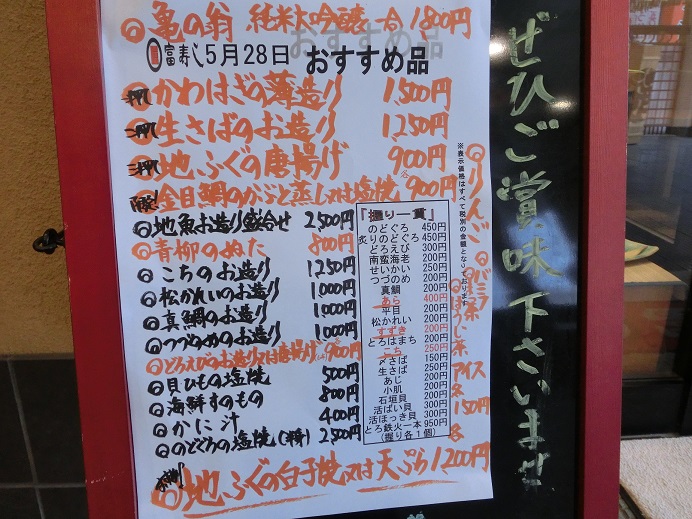 ◎亀の翁 純米大吟醸 一合 1800円
富寿し 5月28日 おすすめ品
一押 かわはぎの薄造り 1,500円
二押 生さばのお造り 1250円
三押 地ふぐの唐揚げ 900円
◎金目鯛のかぶと蒸し又は塩焼 900円
◎地魚お造り盛合せ 2,500円
◎青柳のぬた 800円
◎こちのお造り 1250円
◎松かれいのお造り 1,000円
◎真鯛のお造り 1,000円
◎つづめのお造り 1,000円
◎どろえびのお造り又は唐揚げ 900円
◎貝ひもの塩焼 500円
◎海鮮すのもの 800円
◎かに汁 400円
◎のどぐろの塩焼(特) 2500円
◎地ふぐの白子焼又は天ぷら 1,200円
『握り一貫』
のどぐろ 450円
炙りのどぐろ 450円
どろえび 300円
南蛮海老 200円
せいかい 250円
つづのめ 200円
真鯛 200円
あら 400円
平目 200円
松かれい 200円
すずき 200円
とろはまち 200円
こち 250円
〆さば 150円
生さば 250円
あじ 200円
小肌 200円
石垣貝 200円
活ばい貝 200円
活ほっき貝 300円
とろ鉄火一本 950円
(握り各1個)
※表示価格はすべて税別の金額となっております
◎りんご
◎バニラ
◎ほうじ茶
アイス 各150円
ぜひご賞味下さいませ